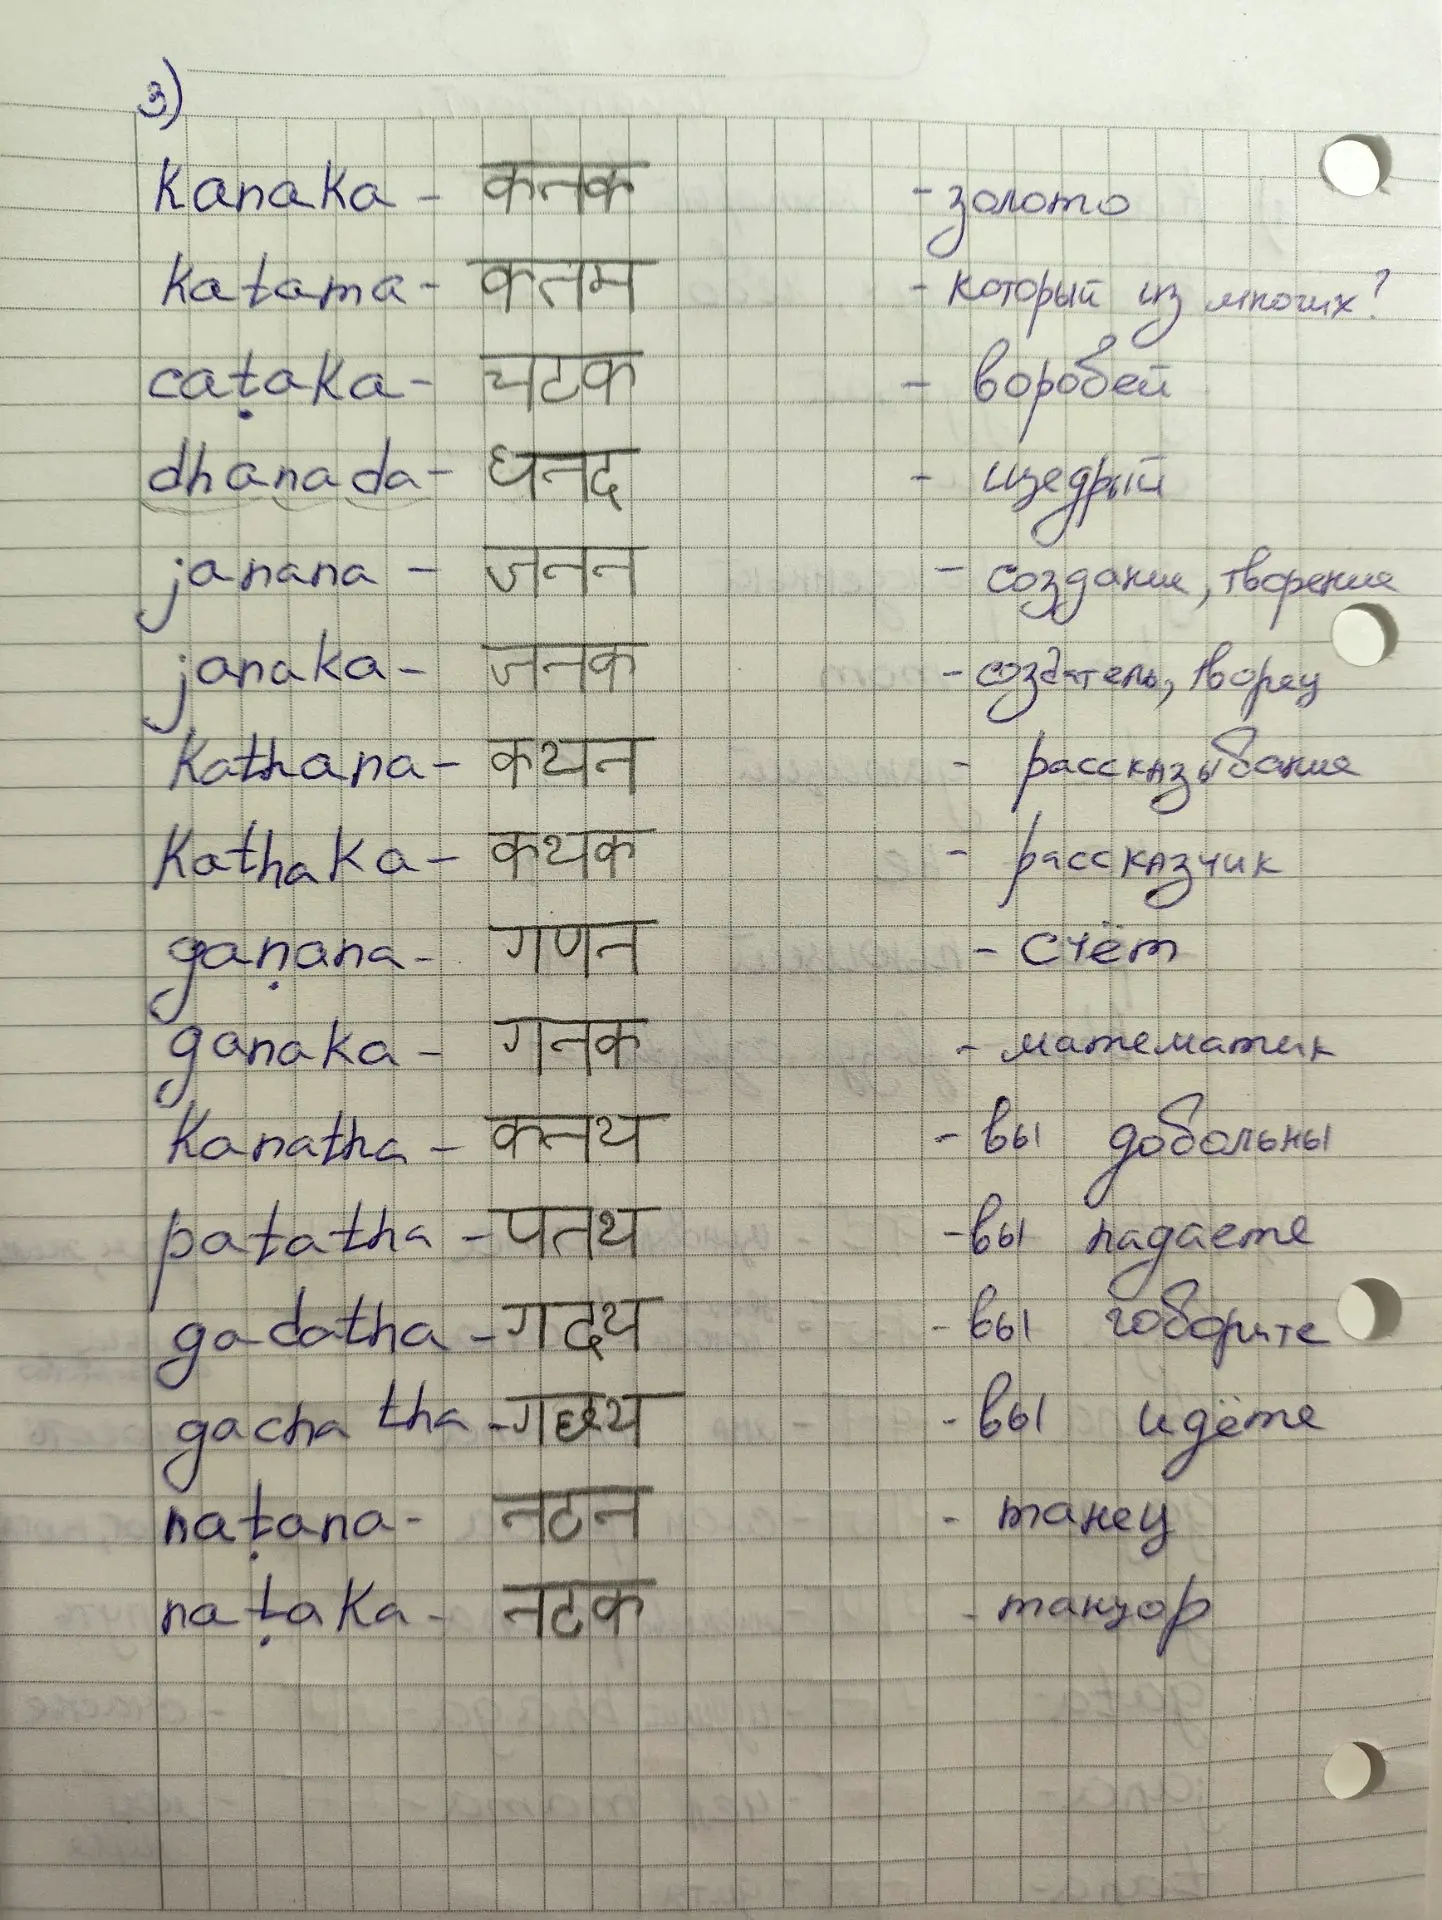 3)
kanaka - कनक - золото
katama - कतम - который из многих?
caṭaka - चटक - воробей
dhanada - धनद - щедрый
janana - जनन - создание, творение
janaka - जनक - создатель, творец
kathana - कथन - рассказывание
kathaka - कथक - рассказчик
gaṇana - गणन - счёт
ganaka - गनक - математик
kanatha - कनथ - вы довольны
patatha - पतथ - вы падаете
gadatha - गदथ - вы говорите
gacha tha - गछथ - вы идёте
naṭana - नटन - танец
naṭaka - नटक - танцор